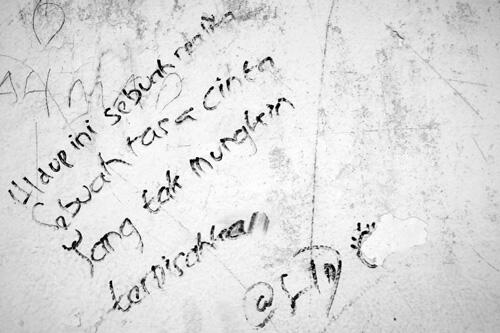 Hidup ini sebuah realita
Sebuah rasa Cinta
Yang tak mungkin
terpisahkan